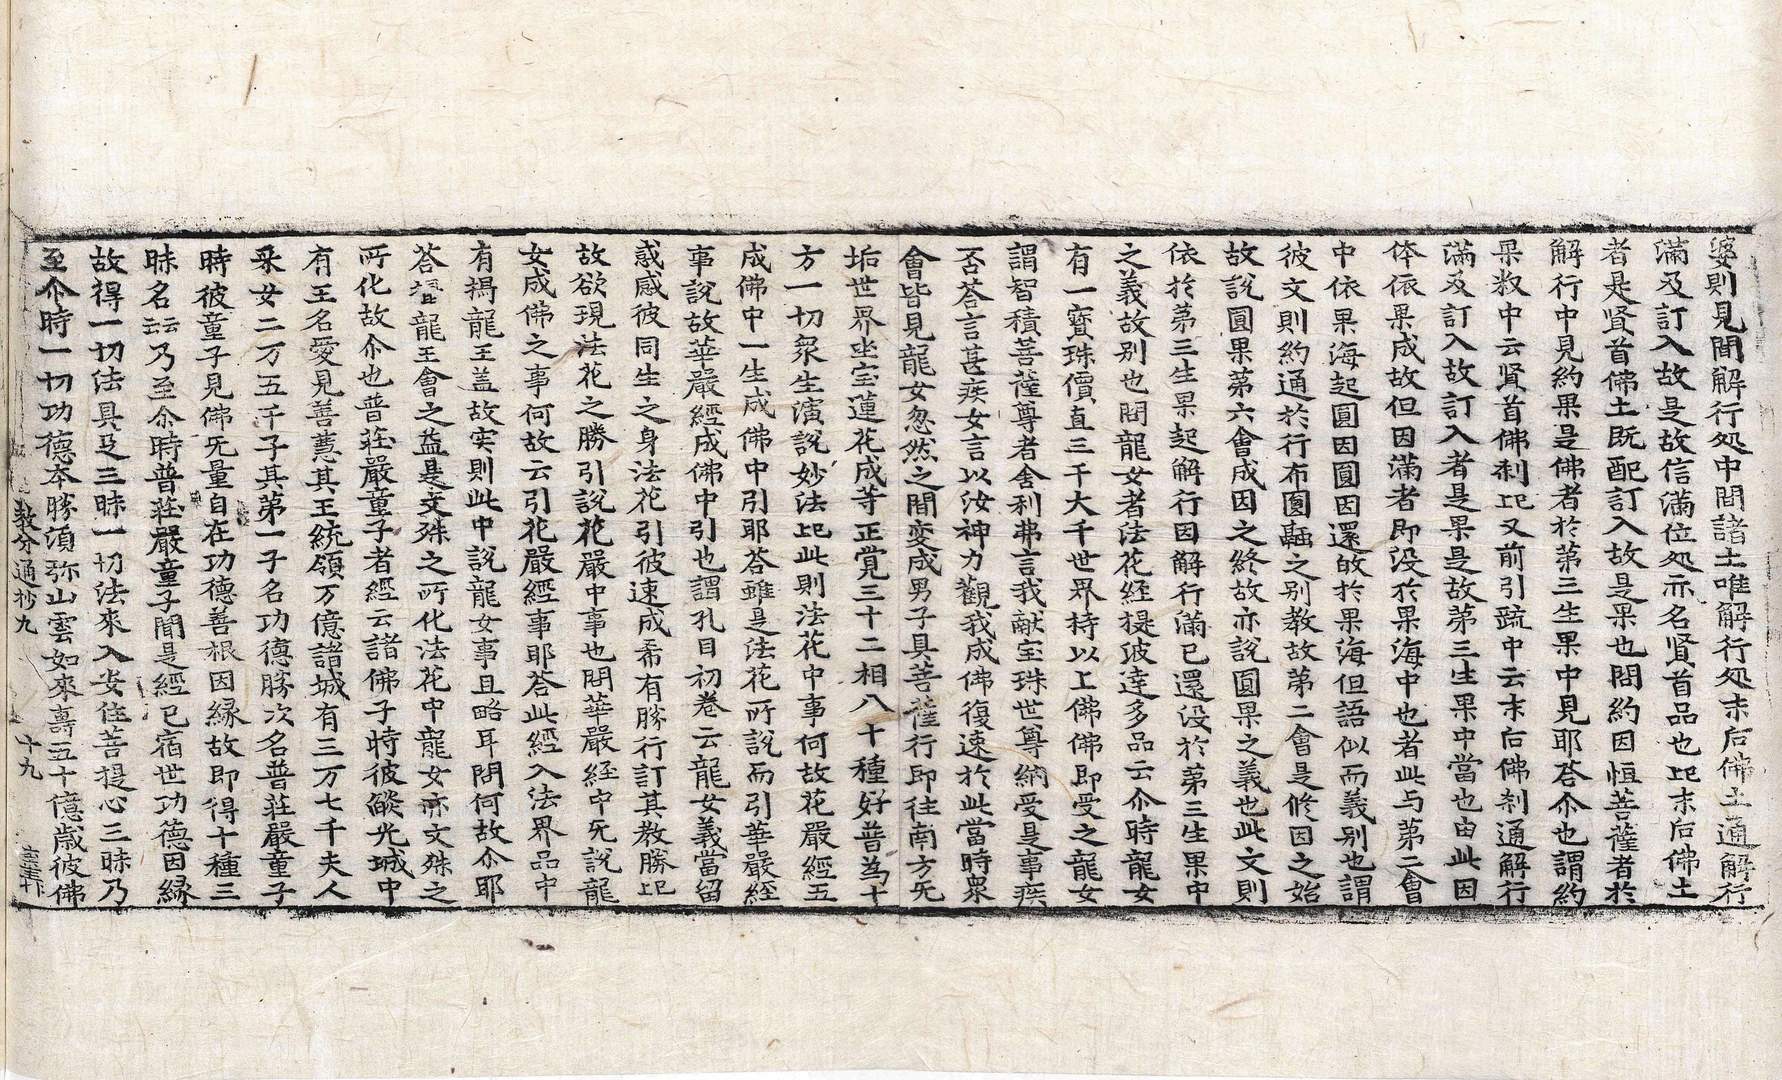 婆則見聞解行処中間諸土唯解行処末后佛土通解行
滿及訂入故是故信滿位処亦名贤首品也比末后佛土
者是贤首佛土既配訂入故是果也問約因恒菩薩者於
解行中見約果是佛者於第三生果中見耶荅尒也謂約
果教中云贤首佛刹比又前引疏中云末后佛刹通解行
滿及訂入故訂入者是果是故第三生果中當也由此因
体依果成故但因滿者即没於果海中也者此与第二會
中依果海起圓因圓因還故於果海但語似而義别也謂
彼文則約通於行布圓融之别教故第二會是修因之始
故說圓果第六會成因之終故亦説圓果之義也此文則
依於第三生果起解行因解行滿已還没於第三生果中
之義故别也問龍女者法花経提波達多品云尒時龍女
有一寶珠價直三千大千世界持以上佛佛即受之龍女
謂智積菩薩尊者舍利弗言我献宝珠世尊納受是事疾
否荅言甚疾女言以汝神力觀我成佛復速於此當時衆
會皆見龍女忽然之間变成男子具菩薩行即往南方旡
垢世界坐宝蓮花成等正覚三十二相八十種好普為十
方一切衆生演說妙法比此則法花中事何故花嚴經五
成佛中一生成佛中引耶荅雖是法花所說而引華嚴経
事說故華嚴經成佛中引也謂孔目初卷云龍女義當留
惑感彼同生之身法花引彼速成希有勝行訂其教勝比
故欲現法花之勝引說花嚴中事也問華嚴経中旡說龍
女成佛之事何故云引花嚴經事耶荅此経入法界品中
有揭龍王盖故实則此中説龍女事且略耳問何故尒耶
荅揭龍王會之益是文殊之所化法花中龍女亦文殊之
所化故尒也普莊嚴童子者經云諸佛子時彼焔光城中
有王名愛見善慧其王統領万億諸城有三万七千夫人
采女二万五千子其第一子名功德勝次名普莊嚴童子
時彼童子見佛旡量自在功德善根因縁故即得十種三
昧名云云乃至尒時普莊嚴童子聞是經已宿世功德因縁
故得一切法具足三昧一切法來入安住菩提心三昧乃
至尒時一切功德本勝須弥山雲如來壽五十億歲彼佛
教分通抄九 十九